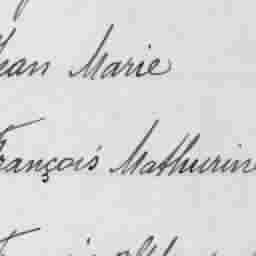 Jean Marie
François Mathurin